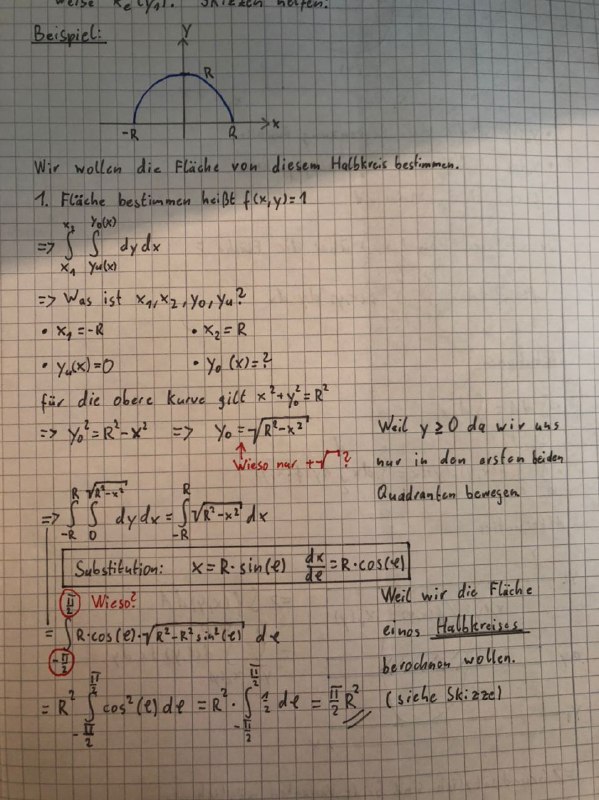 weise x_e(y_1). Skizzen helfen.
Beispiel:
y
R
-R R x
Wir wollen die Fläche von diesem Halbkreis bestimmen.
1. Fläche bestimmen heißt f(x,y)=1
=> ∫_{x_1}^{x_2} ∫_{y_u(x)}^{y_o(x)} dy dx
=> Was ist x_1, x_2, y_o, y_u?
• x_1 = -R • x_2 = R
• y_u(x) = 0 • y_o(x) = ?
für die obere Kurve gilt x² + y_o² = R²
=> y_o² = R² - x² => y_o = √(R² - x²)
Wieso nur +√ ?
Weil y ≥ 0 da wir uns
nur in den ersten beiden
Quadranten bewegen
=> ∫_{-R}^{R} ∫_0^{√(R²-x²)} dy dx = ∫_{-R}^{R} √(R²-x²) dx
Substitution: x = R · sin(φ) dx/dφ = R · cos(φ)
Wieso?
= ∫_{-π/2}^{π/2} R · cos(φ) · √(R² - R² sin²(φ)) dφ
Weil wir die Fläche
eines Halbkreises
berechnen wollen.
(siehe Skizze)
= R² ∫_{-π/2}^{π/2} cos²(φ) dφ = R² · ∫_{-π/2}^{π/2} 1/2 dφ = π/2 R²